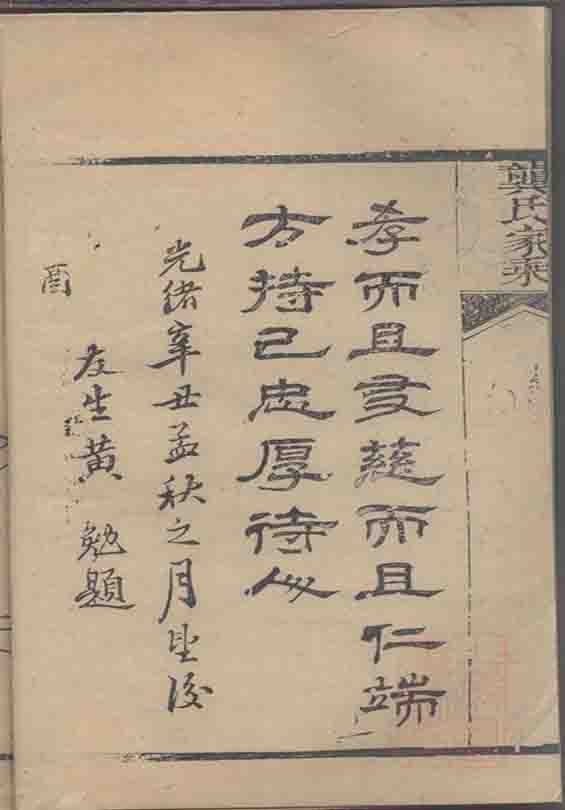 龔氏家乘
孝而且友慈而且仁端
方持己忠厚待人
光緒辛丑孟秋之月望後
左生黃 勉題